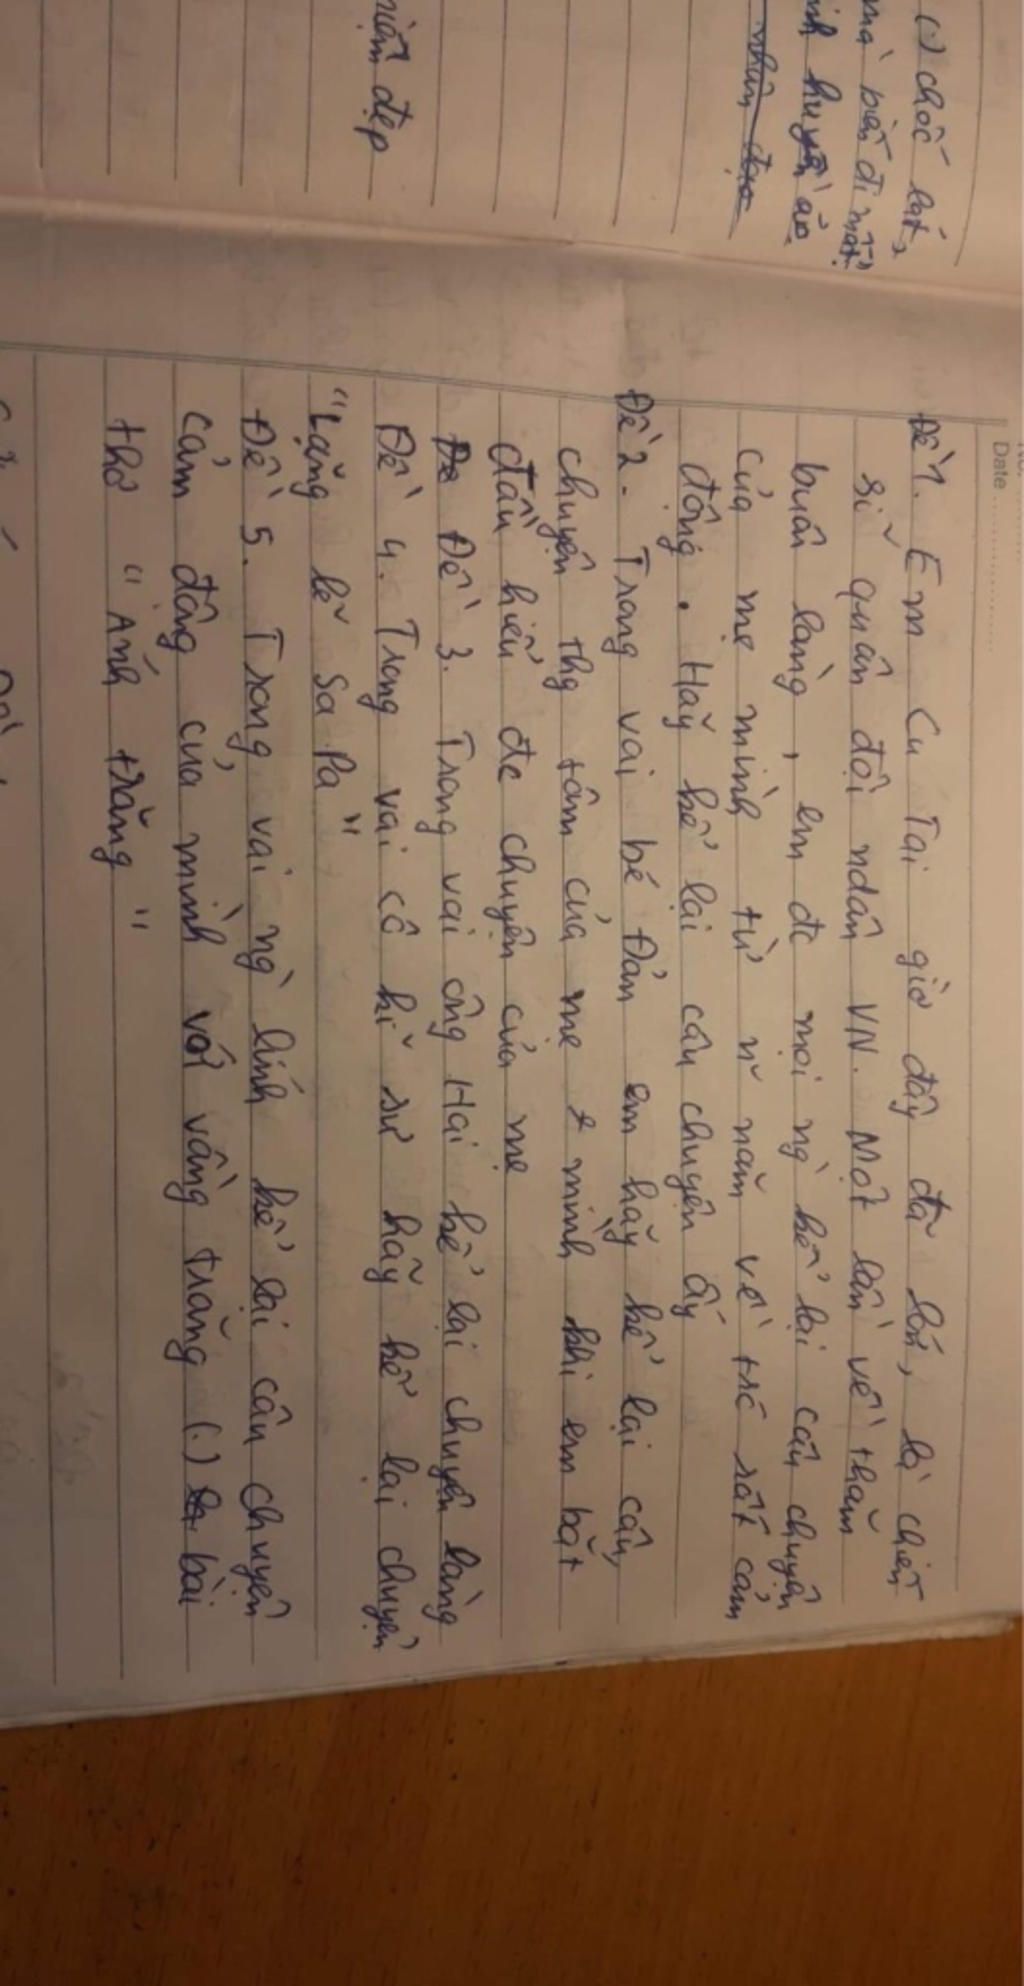 (.) chốc lát,
mà biến đi mất"
huyền ảo
nhân đạo
đẹp
Date
Đề 1. Em Cu Tai giờ đây đã lớn, là chiến
sĩ quân đội ndân VN. Một lần về thăm
buôn làng, em đc mọi ng` kể lại câu chuyện
của mẹ mình từ n~ năm về trc rất cảm
động. Hãy kể lại câu chuyện ấy
Đề 2. Trong vai bé Đản em hãy kể lại câu
chuyện thg tâm của mẹ mình khi em bắt
đầu hiểu đc chuyện của mẹ
Đề 3. Trong vai ông Hai kể lại chuyện làng
Đề 4. Trong vai cô kĩ sư hãy kể lại chuyện
"Lặng lẽ Sa Pa"
Đề 5. Trong vai ng` lính kể lại câu chuyện
cảm động của mình với vầng trăng (.) bài
thơ "Ánh trăng"